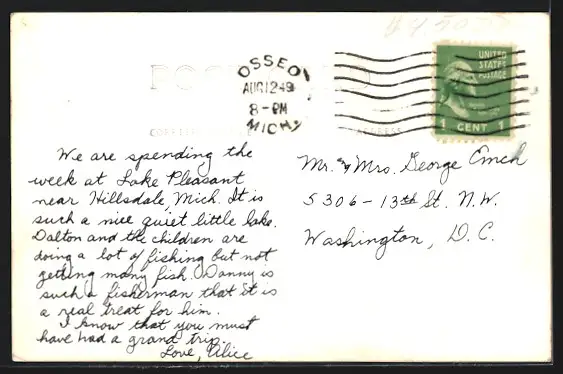 $4.50
OSSEO
AUG12 49
8-PM
MICH.
UNITED
STATES
POSTAGE
1 CENT 1
POST CARD
CORRESPONDENCE
ADDRESS
We are spending the
week at Lake Pleasant
near Hillsdale, Mich. It is
such a nice quiet little lake.
Dalton and the children are
doing a lot of fishing but not
getting many fish. Danny is
such a fisherman that it is
a real treat for him.
I know that you must
have had a grand trip.
Love, Alice
Mr. & Mrs. George Emch
5306-13th St. N.W.
Washington, D.C.